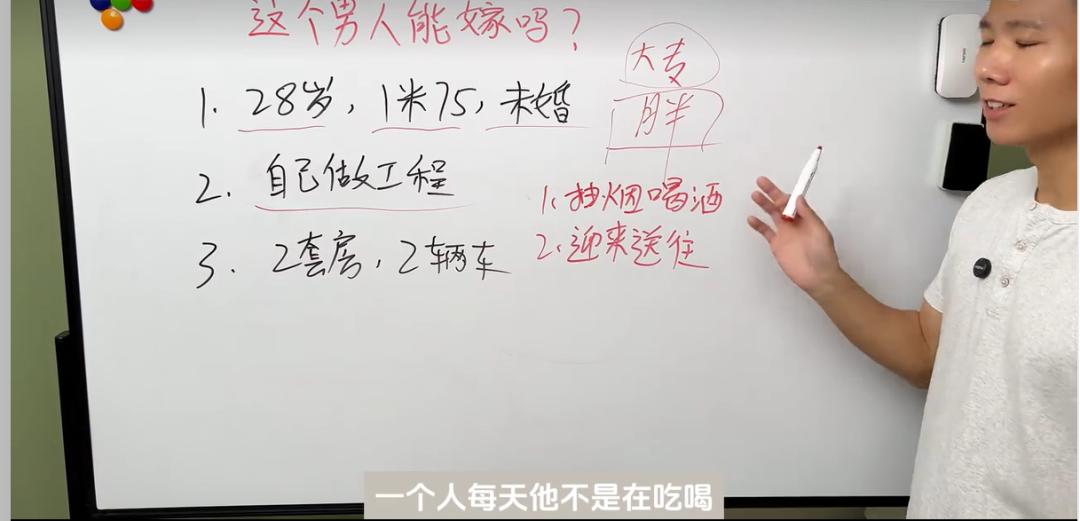 这个男人能嫁吗？
1. 28岁，1米75，未婚
大专
胖
2. 自己做工程
1、抽烟喝酒
3. 2套房，2辆车
2、迎来送往
一个人每天他不是在吃喝